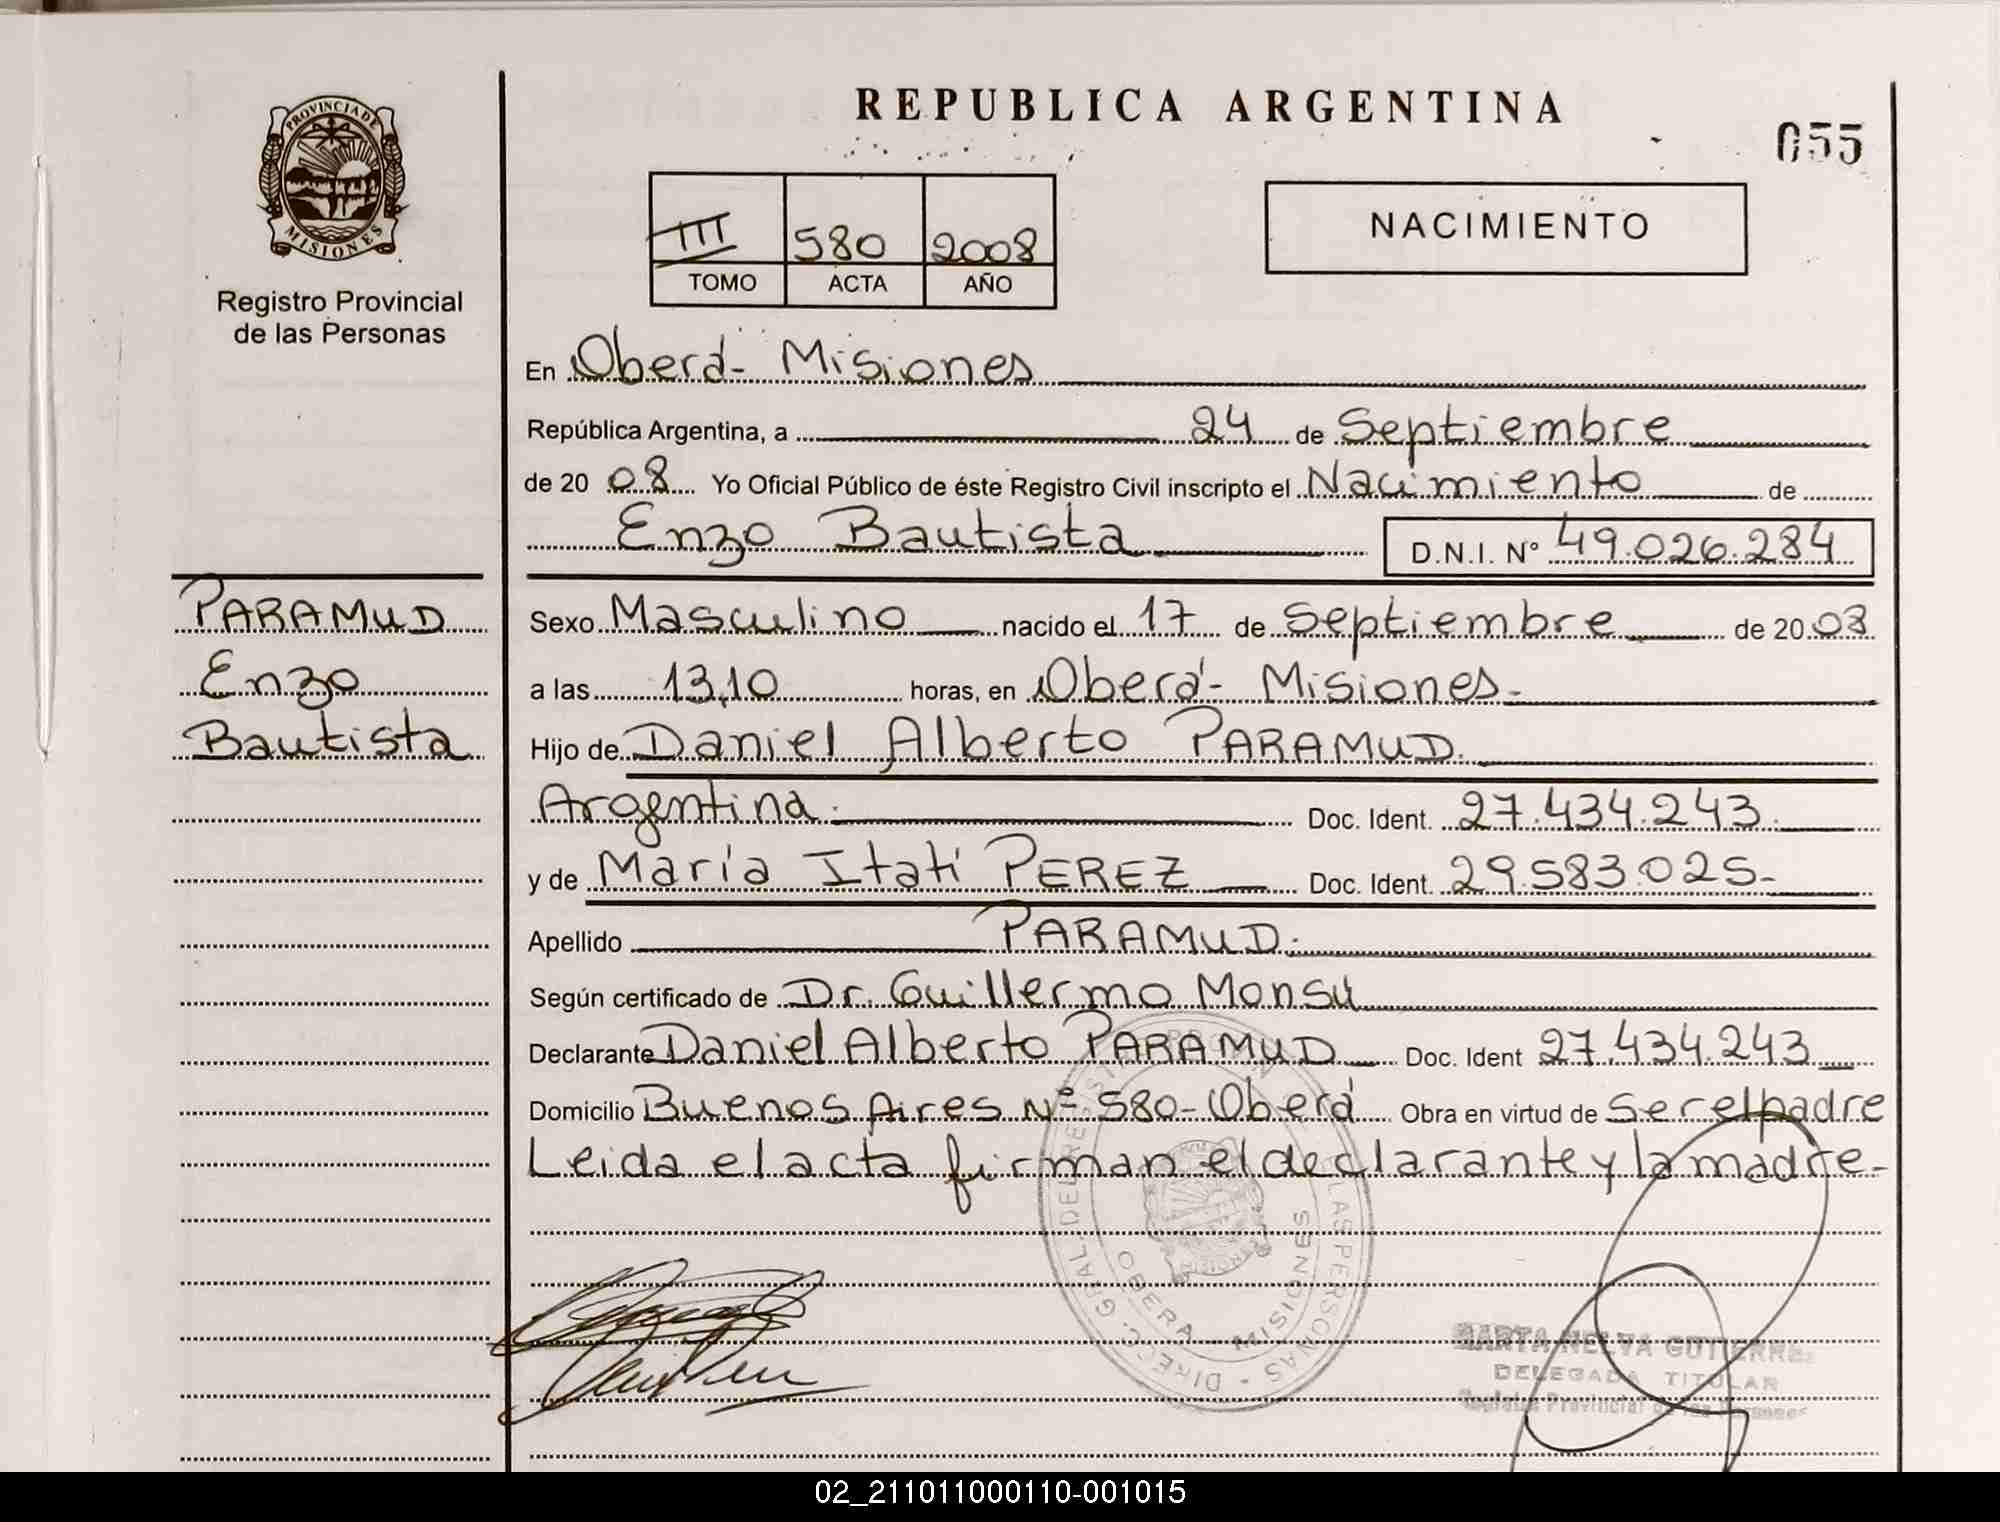 REPUBLICA ARGENTINA
055
PROVINCIA DE
MISIONES
Registro Provincial
de las Personas
III 580 2008
TOMO ACTA AÑO
NACIMIENTO
En Oberá - Misiones
República Argentina, a 24 de Septiembre
de 20 08 Yo Oficial Público de éste Registro Civil inscripto el Nacimiento de
Enzo Bautista D.N.I. Nº 49.026.284
PARAMUD
Enzo
Bautista
Sexo Masculino nacido el 17 de Septiembre de 20 08
a las 13,10 horas, en Oberá - Misiones -
Hijo de Daniel Alberto PARAMUD.
Argentina. Doc. Ident. 27.434.243.
y de María Itatí PEREZ Doc. Ident. 29.583.025-
Apellido PARAMUD.
Según certificado de Dr. Guillermo Monsú
Declarante Daniel Alberto PARAMUD Doc. Ident 27.434.243
Domicilio Buenos Aires Nº 580 - Oberá Obra en virtud de ser el padre
Leida el acta firman el declarante y la madre-
OBERA - MISIONES
DELEGADA TITULAR
02_211011000110-001015